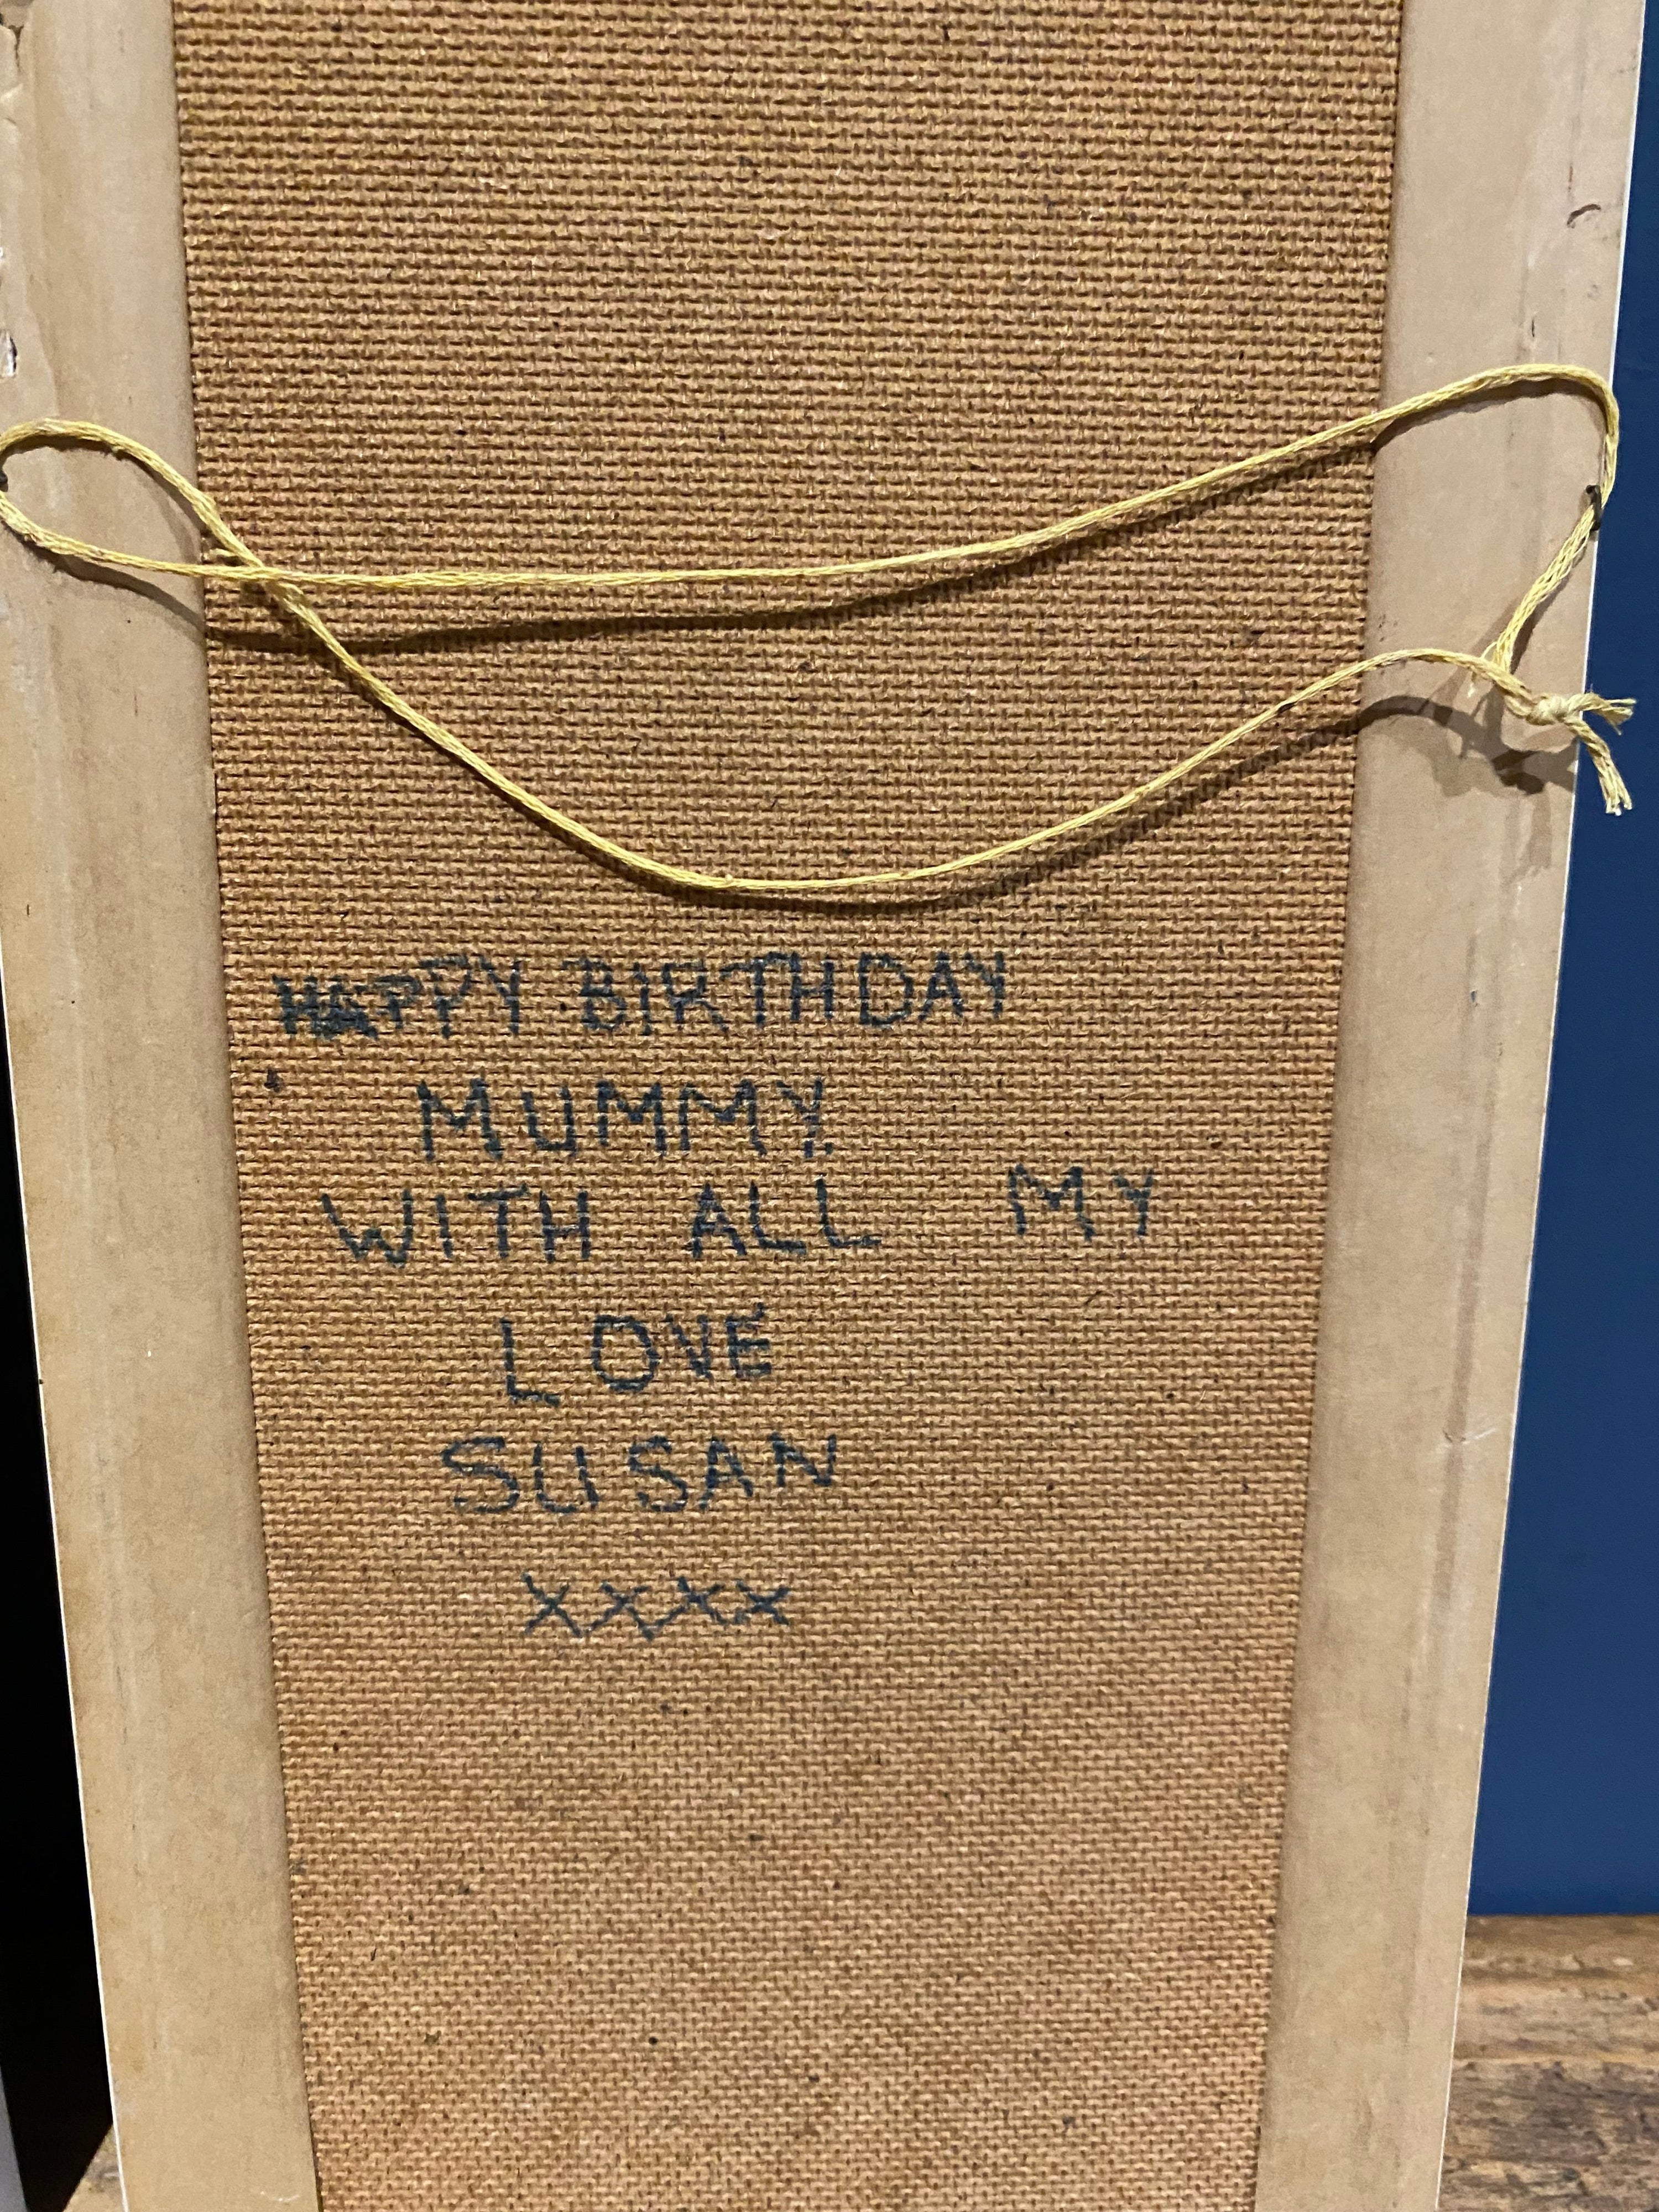 HAPPY BIRTHDAY
MUMMY
WITH ALL MY
LOVE
SUSAN
xxxx